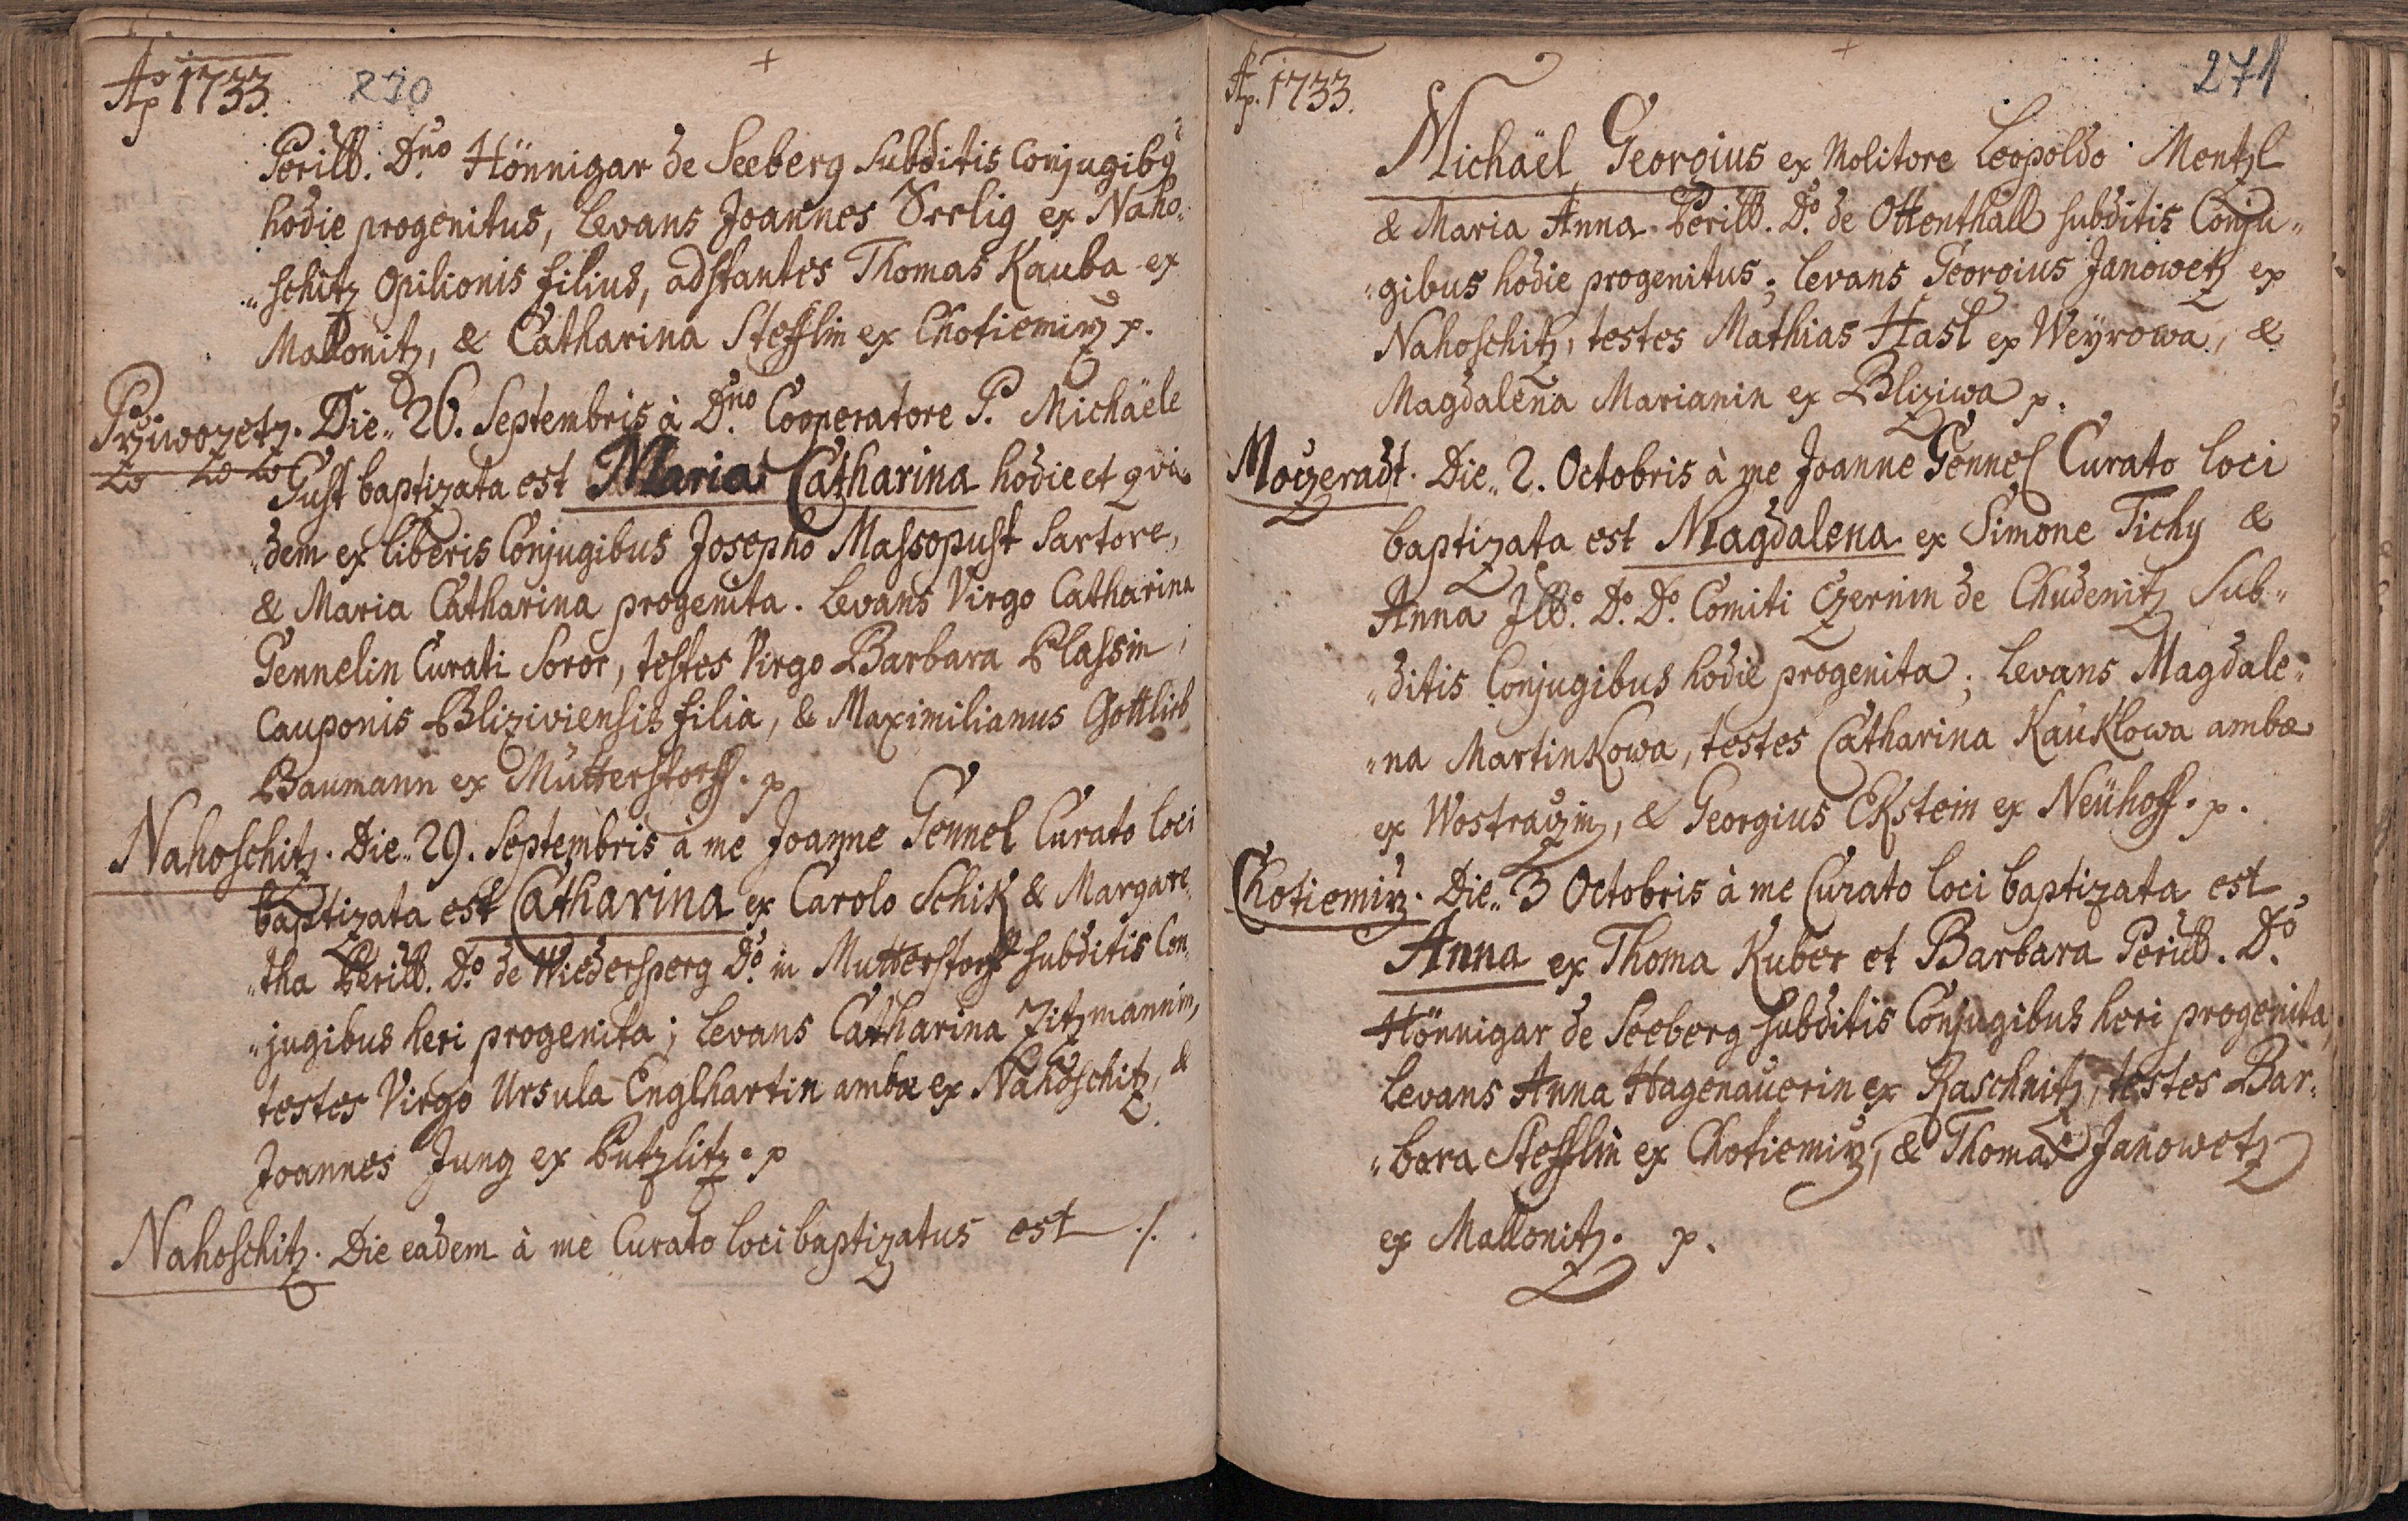 Aō 1733. 270
Perill. Dno Hönnigar de Seeberg Subditis Conjugibq
hodie progenitus, Levans Joannes Seelig ex Naho„
„schitz Opilionis filius, adstantes Thomas Kauba ex
Mallonitz, & Catharina Stefflin ex Chotiemirz p.
Przivozetz. Die„ 26. Septembris à Dno Cooperatore P. Michäele
Gust baptizata est Maria Catharina hodie et qvi„
„dem ex liberis Conjugibus Josepho Massopust Sartore,
& Maria Catharina progenita. Levans Virgo Catharina
Gennelin Curati Soror, testes Virgo Barbara Blassin,
Cauponis Bliziviensis filia, & Maximilianus Gottlieb
Baumann ex Mutterstorff. p
Nahoschitz. Die„ 29. Septembris à me Joanne Gennel Curato loci
baptizata est Catharina ex Carolo Schik & Margare„
„tha Perill. Do. de Wiedersperg Do. in Mutterstorff subditis Con„
„jugibus heri progenita; Levans Catharina Zitzmannin,
testes Virgo Ursula Englhartin ambæ ex Nahoschitz, &
Joannes Jung ex Putzlitz. p
Nahoschitz. Die eadem à me Curato loci baptizatus est ./.
Aō. 1733. 271
Michäel Georgius ex Molitore Leopoldo Mentzl
& Maria Anna Perill. Do. de Ottenthall subditis Conju„
„gibus hodie progenitus; Levans Georgius Janowetz ex
Nahoschitz, testes Mathias Hasl ex Weÿrowa, &
Magdalena Marianin ex Bliziwa p.
Moczeradt. Die„ 2. Octobris à me Joanne Gennel Curato loci
baptizata est Magdalena ex Simone Tichy &
Anna Ill̃o. Do. Do. Comiti Czernin de Chudenitz Sub„
„ditis Conjugibus hodie progenita; Levans Magdale„
„na Martinkowa, testes Catharina Kauklowa ambæ
ex Wostraczin, & Georgius Ekstein ex Neühoff. p.
Chotiemirz. Die„ 3 Octobris à me Curato loci baptizata est
Anna ex Thoma Kuber et Barbara Perill. Do.
Hönnigar de Seeberg subditis Conjugibus heri progenita,
Levans Anna Hagenauerin ex Raschnitz, testes Bar„
„bara Stefflin ex Chotiemirz, & Thomas Janowetz
ex Mallonitz. p.